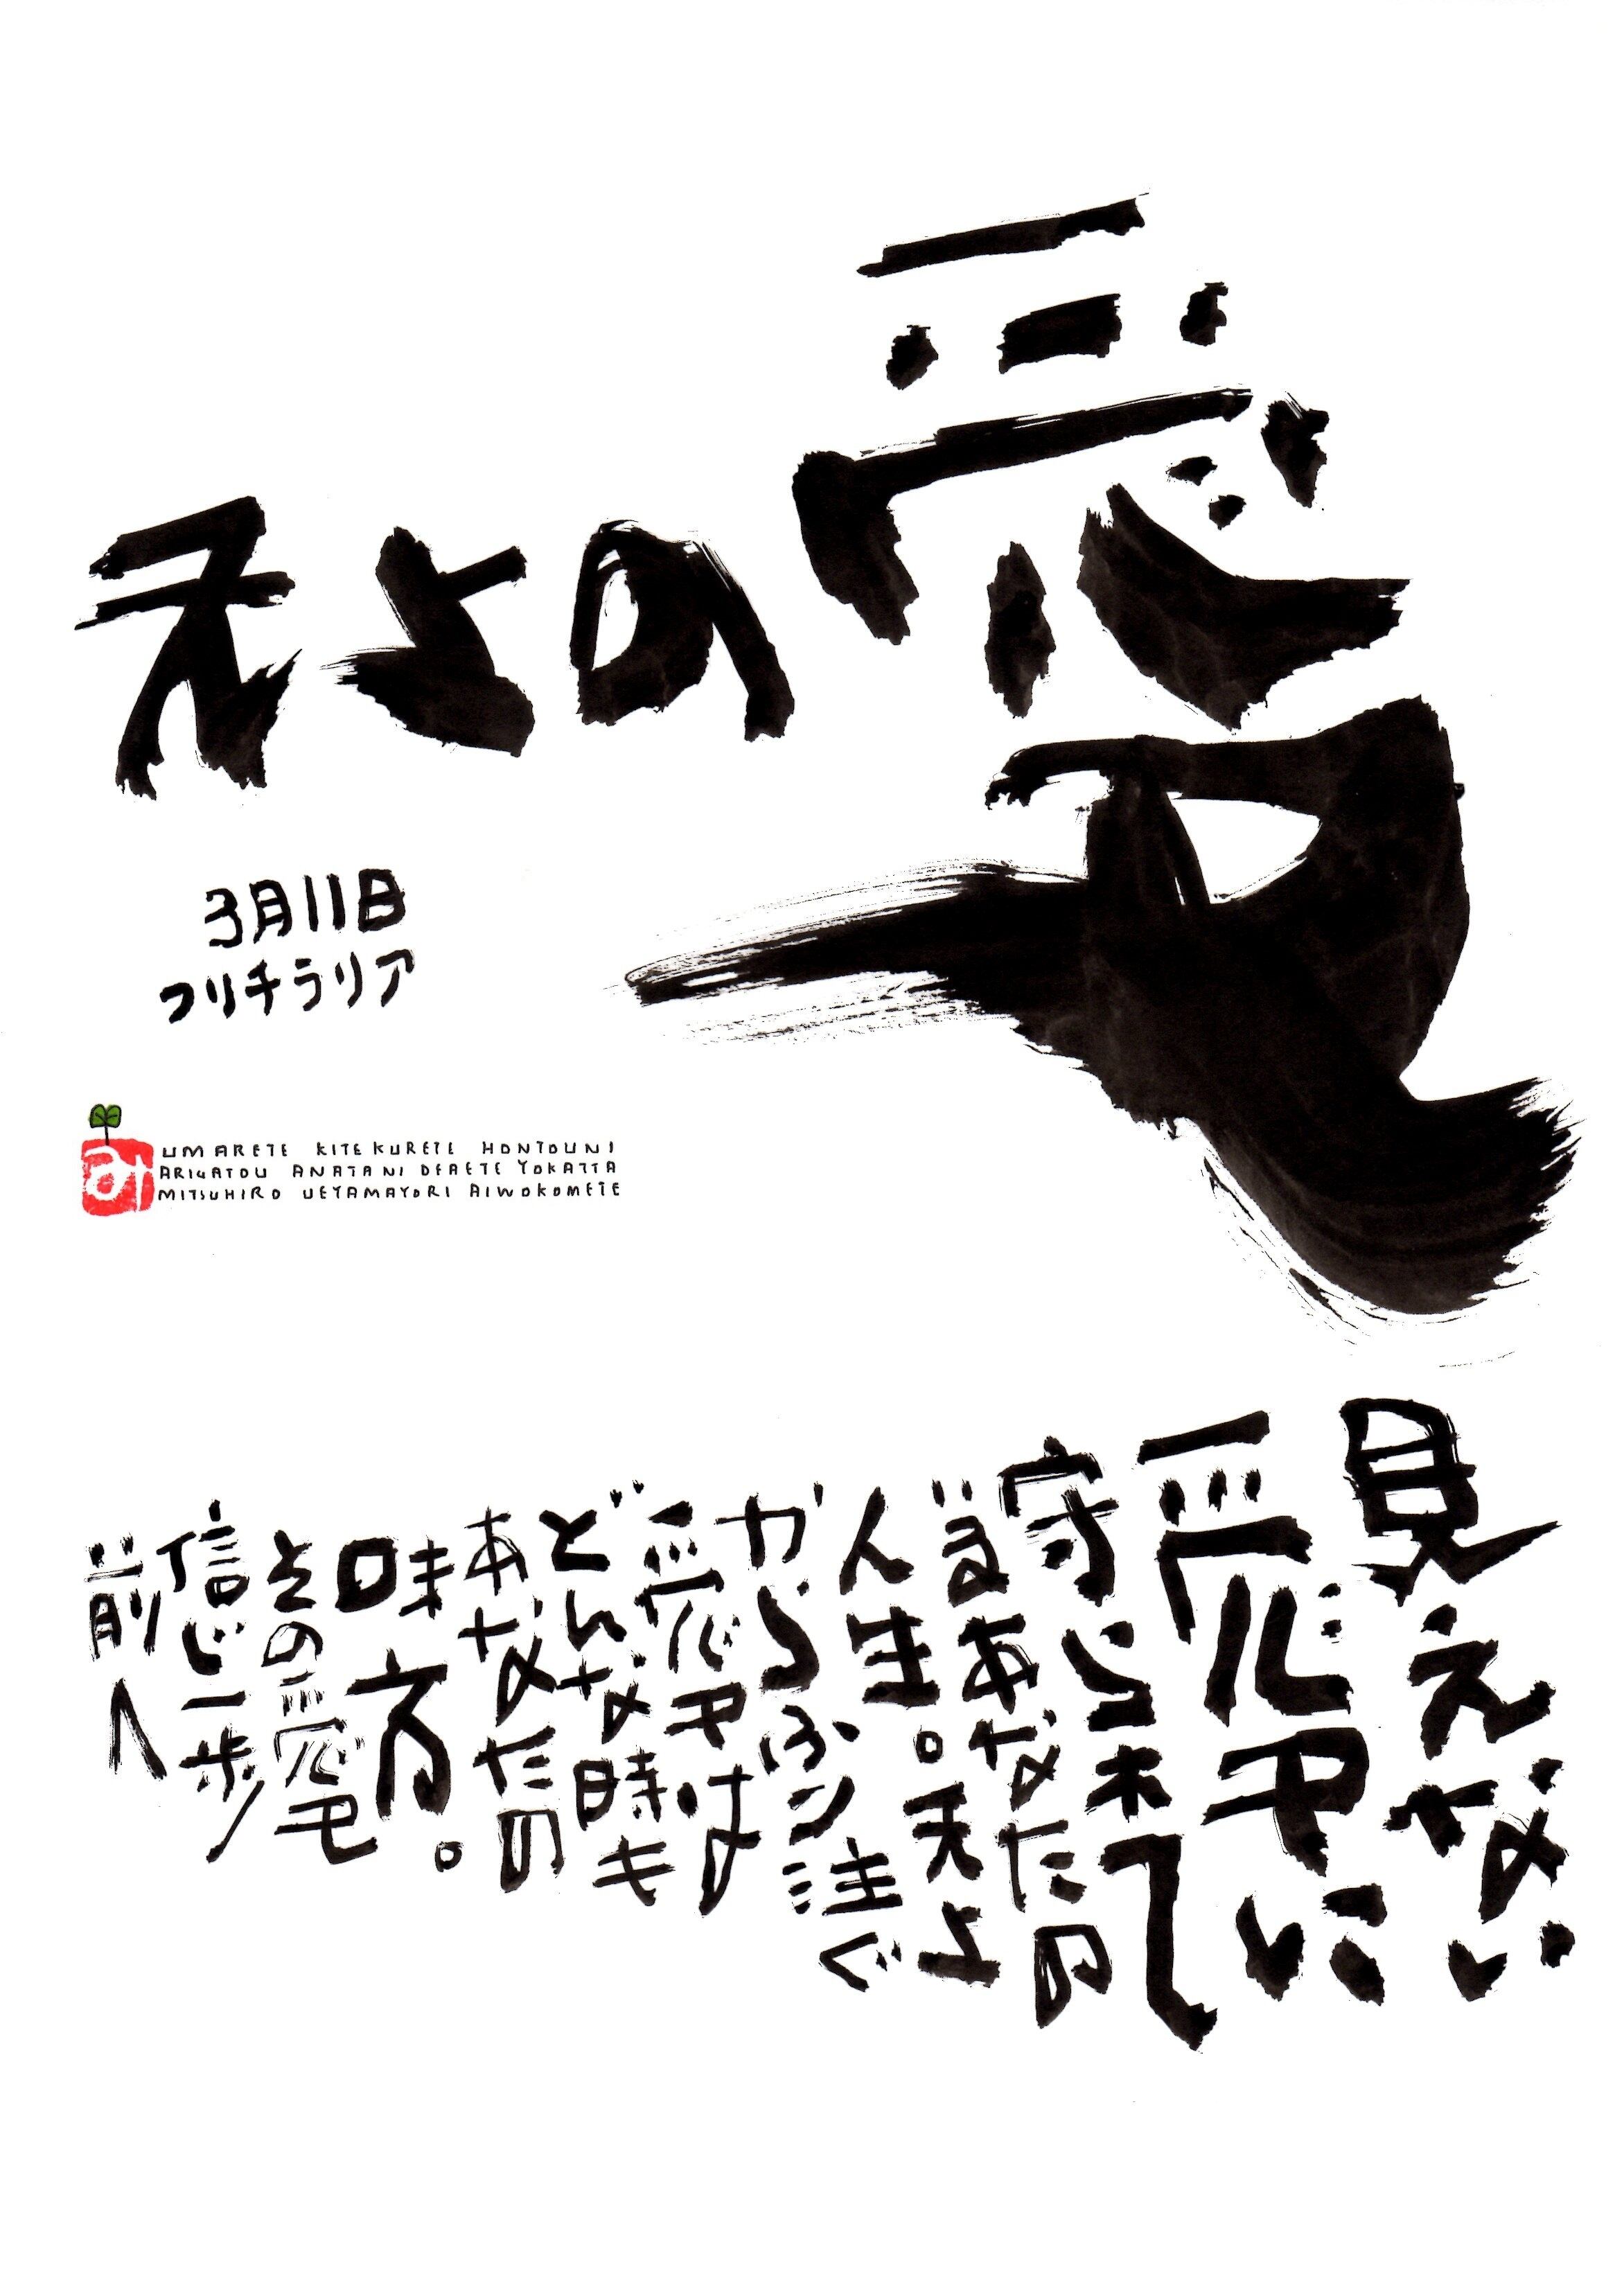 天上の愛
3月11日
フリチラリア
み
UMARETE KITEKURETE HONTOUNI
ARIGATOU ANATANI DEAETE YOKATTA
MITSUHIRO UEYAMAYORI AIWOKOMETE
見えない
愛に
守られて
いるあなたの
人生。天上
からふり注ぐ
愛は
どんな時も
あなたの
味方。
その愛を
信じ一歩
前へ